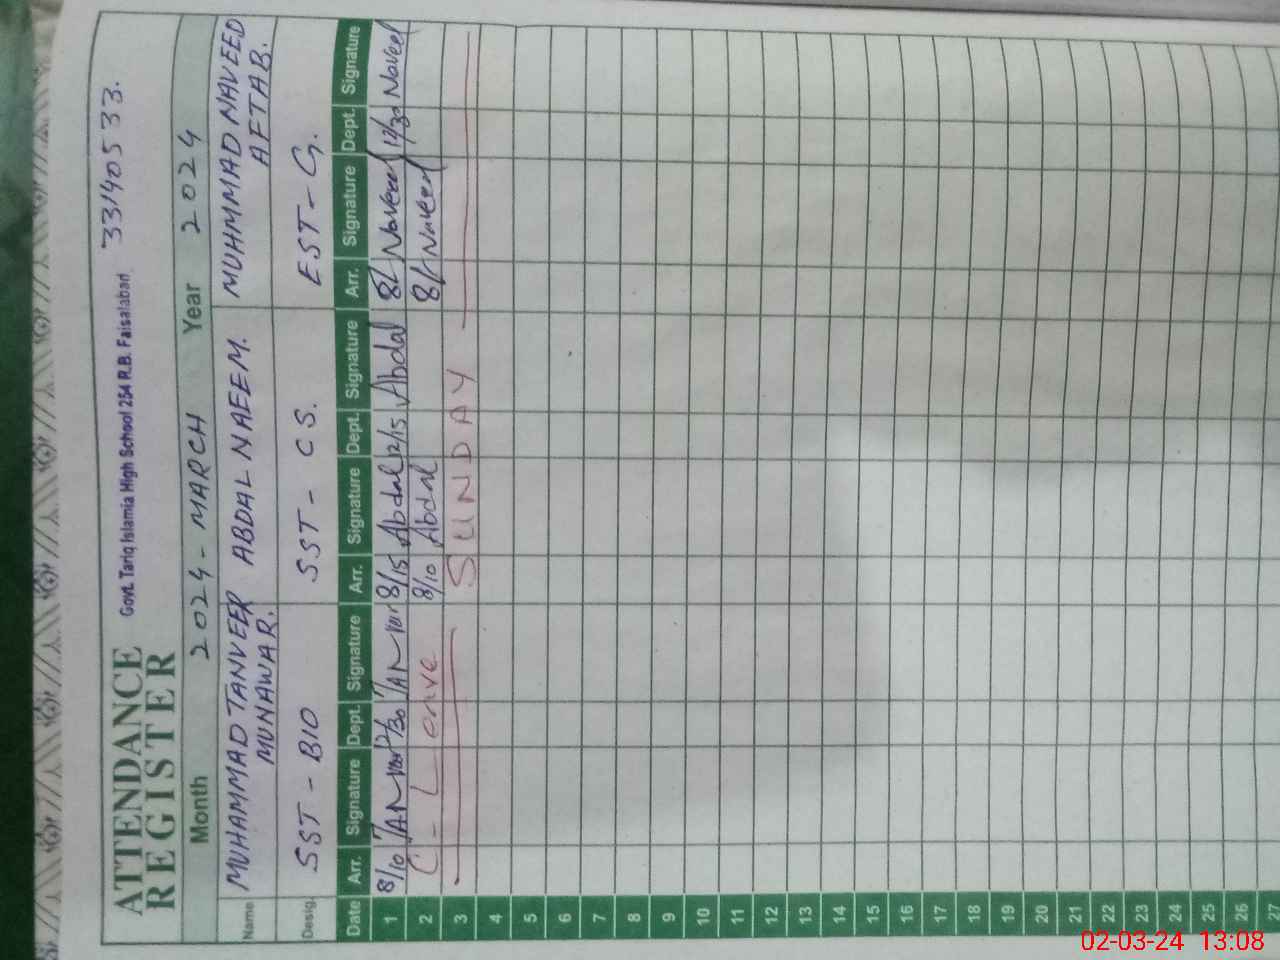 ATTENDANCE
REGISTER
Govt. Tariq Islamia High School 254 R.B. Faisalabad
33140533.
Month 2024 - MARCH Year 2024
Name MUHAMMAD TANVEER MUNAWAR. ABDAL NAEEM. MUHMMAD NAVEED AFTAB.
Desig. SST - BIO SST - CS. EST - G.
Date Arr. Signature Dept. Signature Arr. Signature Dept. Signature Arr. Signature Dept. Signature
1 8/10 12/30 8/15 Abdal 12/15 Abdal 8/ Naveed 12/30 Naveed
2 C - Leave 8/10 Abdal 8/ Naveed
3 SUNDAY
4
5
6
7
8
9
10
11
12
13
14
15
16
17
18
19
20
21
22
23
24
25
26
27
02-03-24 13:08